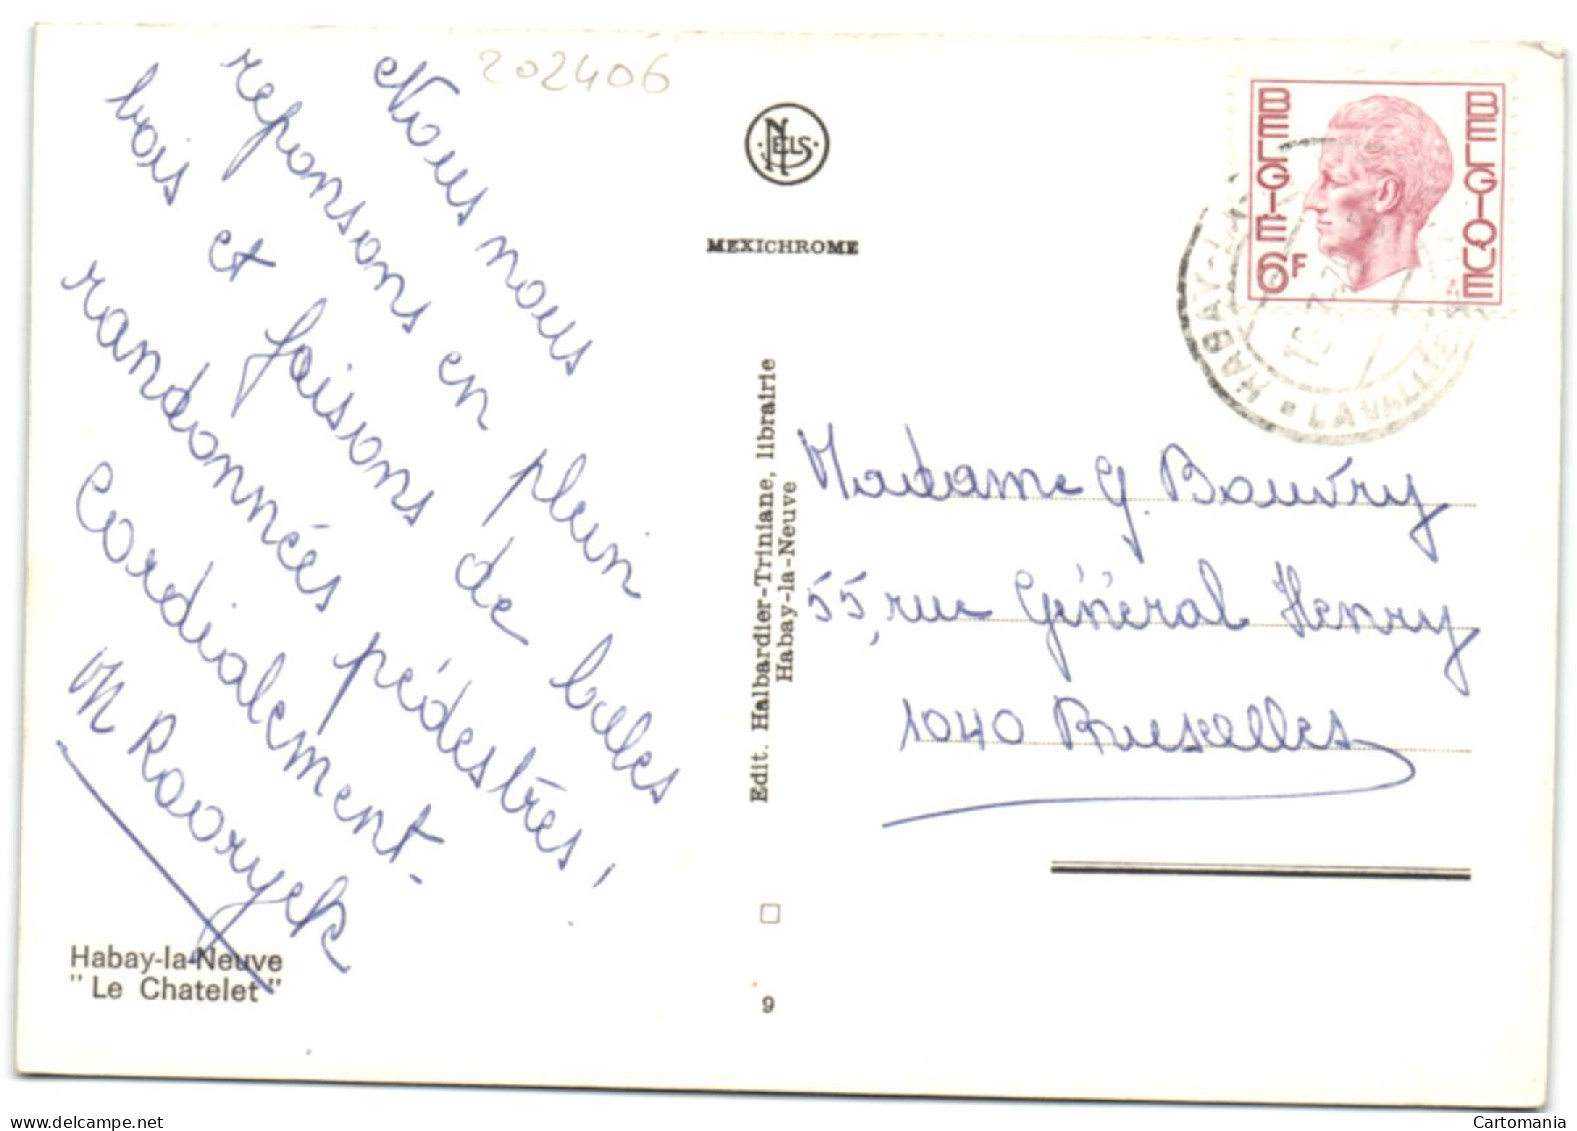 202406
Nous nous
reponsons en plein
bois et faisons de belles
randonnées pédestres!
Cordialement.
M Raoryck
Habay-la-Neuve
"Le Chatelet"
NELS
MEXICHROME
Edit. Halbardier-Triniane, librairie
Habay-la-Neuve
9
BELGIE 6F
BELGIQUE
HABAY-LA-
LAVALLTE
Madame G. Bouvry
55, rue Général Henry
1040 Bruxelles
Cartomania